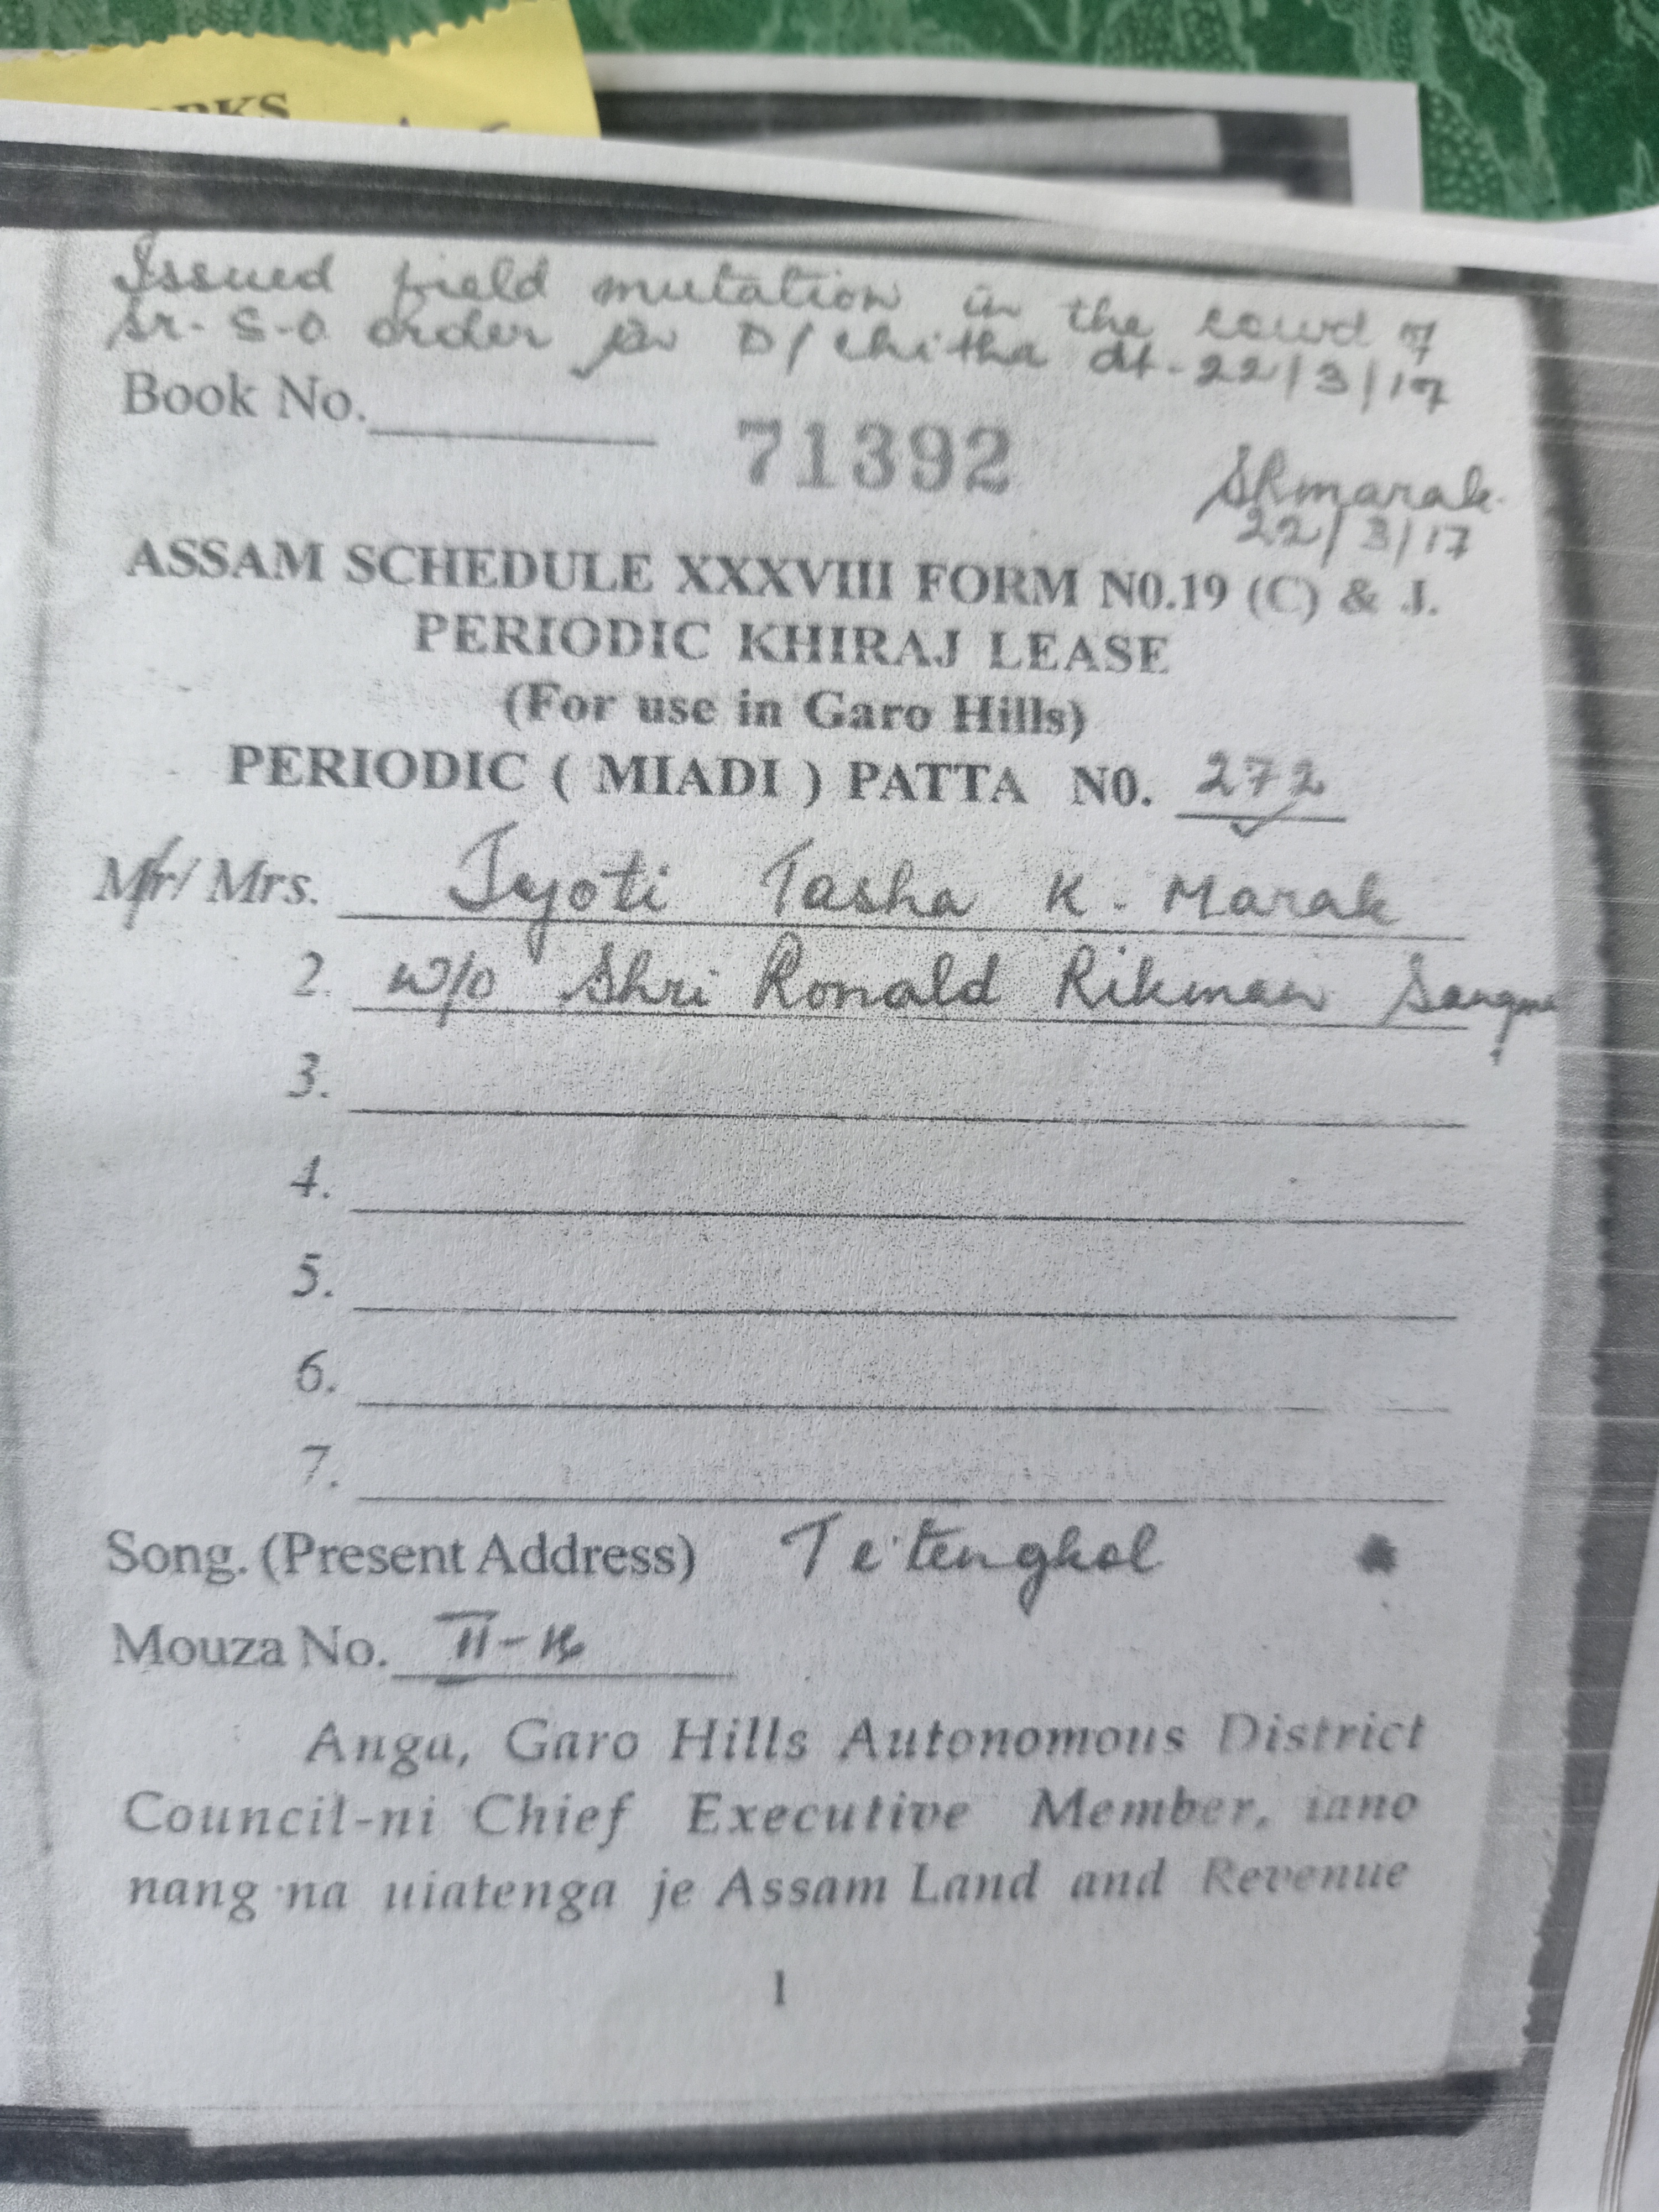 RKS
Issued field mutation in the court of
Sr. S.O order for D/ Chitha dt. 22/3/17
Book No.
71392
SRmarak.
22/3/17
ASSAM SCHEDULE XXXVIII FORM N0.19 (C) & J.
PERIODIC KHIRAJ LEASE
(For use in Garo Hills)
PERIODIC ( MIADI ) PATTA N0. 272
Mr/ Mrs. Jyoti Tasha K. Marak
2. W/o Shri Ronald Rikman Sangma
3.
4.
5.
6.
7.
Song. (Present Address) Te'tengkol
Mouza No. II-
Anga, Garo Hills Autonomous District
Council-ni Chief Executive Member, iano
nang·na uiatenga je Assam Land and Revenue
1